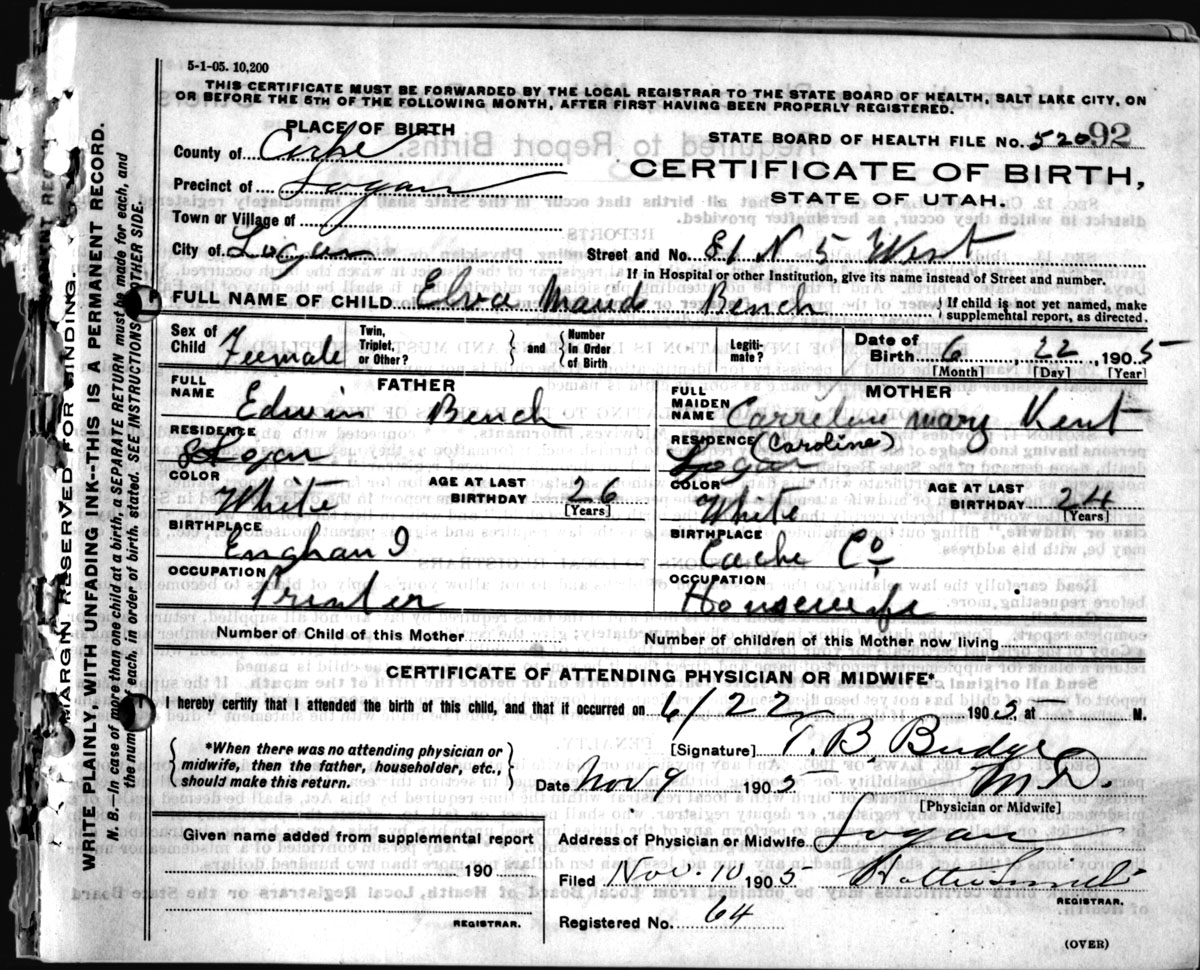 5-1-05. 10,200
THIS CERTIFICATE MUST BE FORWARDED BY THE LOCAL REGISTRAR TO THE STATE BOARD OF HEALTH, SALT LAKE CITY, ON
OR BEFORE THE 5TH OF THE FOLLOWING MONTH, AFTER FIRST HAVING BEEN PROPERLY REGISTERED.
PLACE OF BIRTH
STATE BOARD OF HEALTH FILE NO. 52092
County of Cache
CERTIFICATE OF BIRTH,
Precinct of Logan
STATE OF UTAH.
Town or Village of
City of Logan Street and No. 81 N 5 West
If in Hospital or other Institution, give its name instead of Street and No.
FULL NAME OF CHILD Elva Maud Bench { If child is not yet named, make
supplemental report, as directed.
Sex of Child Feemale Twin, Triplet, or Other? } and { Number in Order of Birth Legiti- mate? Date of Birth 6 22 1905
[Month] [Day] [Year]
FATHER
MOTHER
FULL NAME Edwin Bench
FULL MAIDEN NAME Carreline mary Kent
(Caroline)
RESIDENCE Logan
RESIDENCE Logan
COLOR White AGE AT LAST BIRTHDAY 26 [Years]
COLOR White AGE AT LAST BIRTHDAY 24 [Years]
BIRTHPLACE
BIRTHPLACE Cache Co
OCCUPATION Printer
OCCUPATION Housewife
Number of Child of this Mother
Number of children of this Mother now living
CERTIFICATE OF ATTENDING PHYSICIAN OR MIDWIFE*
I hereby certify that I attended the birth of this child, and that it occurred on 6/22 1905, at — M.
{ *When there was no attending physician or
midwife, then the father, householder, etc.,
should make this return. }
[Signature] T. B Budge
Date Nov 9 1905 M.D.
[Physician or Midwife]
Given name added from supplemental report
190
REGISTRAR.
Address of Physician or Midwife Logan
Filed Nov. 10 1905
REGISTRAR.
Registered No. 64
(OVER)
MARGIN RESERVED FOR BINDING
WRITE PLAINLY, WITH UNFADING INK--THIS IS A PERMANENT RECORD.
N. B.--In case of more than one child at a birth, a SEPARATE RETURN must be made for each, and
the number of each, in order of birth, stated. SEE INSTRUCTIONS ON OTHER SIDE.